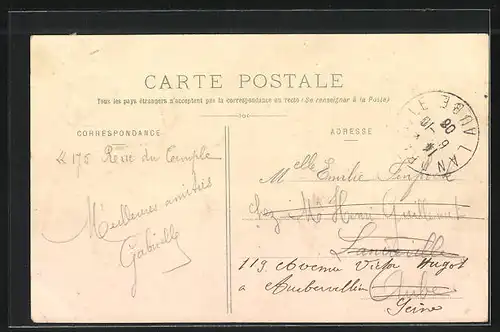 CARTE POSTALE
Tous les pays étrangers n'acceptent pas la correspondance au recto (Se renseigner à la Poste)
CORRESPONDANCE
175 Rue du Temple
Meilleures amitiés
Gabrielle
ADRESSE
Melle Emilie
chez Mr Henri Guillemet
119 Avenue Victor Hugot
a Aubervilliers Aube
Seine
AUBE